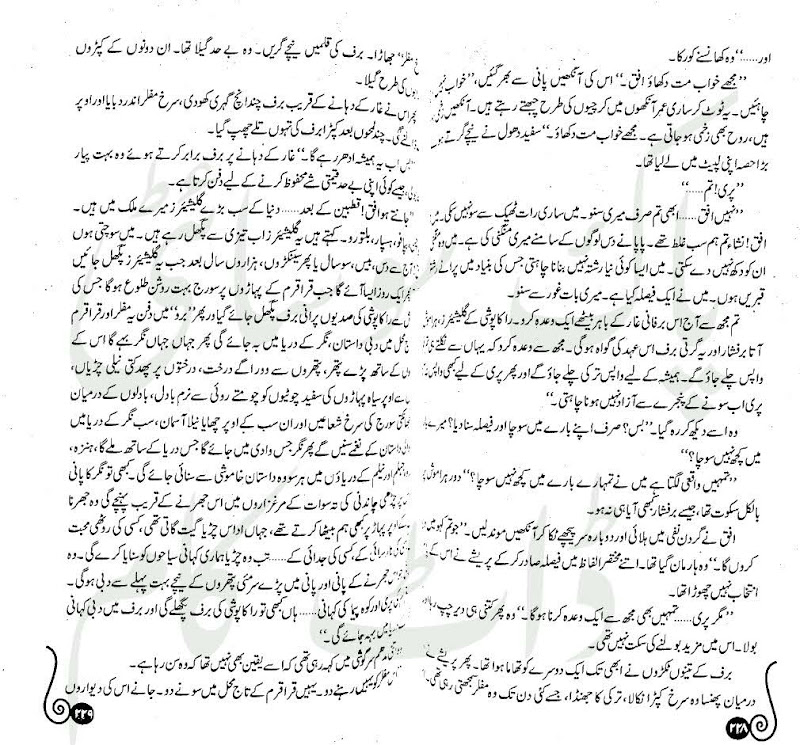 اور......‘‘وہ کھانسنے کو رکا۔
’’مجھے خواب مت دکھاؤ افق۔‘‘ اس کی آنکھیں پانی سے بھر گئیں، ’’خواب نہیں
چاہئیں۔ یہ ٹوٹ کر ساری عمر آنکھوں میں کرچیوں کی طرح چبھتے رہتے ہیں۔ آنکھیں
ہیں، روح بھی زخمی ہو جاتی ہے۔ مجھے خواب مت دکھاؤ۔‘‘ سفید دھول نے نیچے گرتے
بڑا حصہ اپنی لپیٹ میں لے لیا تھا۔
’’پری! تم......‘‘
’’نہیں افق...... ابھی تم صرف میری سنو۔ میں ساری رات ٹھیک سے سو نہیں سکی۔ میں
افق! نشاء تم ہم سب غلط تھے۔ پاپا نے دس لوگوں کے سامنے میری منگنی کی ہے۔ میں
ان کو دکھ نہیں دے سکتی۔ میں ایسا کوئی نیا رشتہ نہیں بنانا چاہتی جس کی بنیاد میں پرانے
قبریں ہوں۔ میں نے ایک فیصلہ کیا ہے۔ میری بات غور سے سنو۔
تم مجھ سے آج اس برفانی غار کے باہر بیٹھے ایک وعدہ کرو۔ راکا پوشی کے گلیشیئرز،
آتا برفشار اور یہ گرتی برف اس عہد کی گواہ ہو گی۔ مجھ سے وعدہ کرو کہ یہاں سے نکلتے
واپس چلے جاؤ گے۔ ہمیشہ کے لیے واپس ترکی چلے جاؤ گے اور پھر پری کے لیے کبھی واپس
پری اب سونے کے پنجرے سے آزاد نہیں ہونا چاہتی۔‘‘
وہ اسے دیکھ کر رہ گیا۔ ’’بس؟ صرف اپنے بارے میں سوچا اور فیصلہ سنا دیا؟ میرے
میں کچھ نہیں سوچا؟‘‘
’’تمہیں واقعی لگتا ہے میں نے تمہارے بارے میں کچھ نہیں سوچا؟‘‘ دور ہراموش
بالکل سکوت تھا، جیسے برفشار کبھی آیا ہی نہ ہو۔
افق نے گردن نفی میں ہلائی اور دوبارہ سر پیچھے ٹکا کر آنکھیں موند لیں۔ ’’جو تم کہو
کروں گا۔‘‘ وہ ہار مان گیا تھا۔ اتنے مختصر الفاظ میں فیصلہ صادر کر کے پریشے نے اس کے
انتخاب نہیں چھوڑا تھا۔
’’مگر پری...... تمہیں بھی مجھ سے ایک وعدہ کرنا ہو گا۔‘‘ وہ پھر کتنی ہی دیر چپ رہا
بولا۔ اس میں مزید بولنے کی سکت نہیں تھی۔
برف کے تینوں ٹکڑوں نے ابھی تک ایک دوسرے کو تھاما ہوا تھا۔ پھر پریشے نے
درمیان پھنسا وہ سرخ کپڑا نکالا، ترکی کا جھنڈا، جسے کئی دن تک وہ مفلر سمجھتی رہی تھی۔
۲۳۸
جھاڑا۔ برف کی قلمیں نیچے گریں۔ وہ بے حد گیلا تھا۔ ان دونوں کے کپڑوں
کی طرح گیلا۔
اس نے غار کے دہانے کے قریب برف چند انچ گہری کھودی، سرخ مفلر اندر دبایا اور اوپر
چند لمحوں بعد کپڑا برف کی تہوں تلے چھپ گیا۔
اب یہ ہمیشہ ادھر رہے گا۔‘‘ غار کے دہانے پر برف برابر کرتے ہوئے وہ بہت پیار
جیسے کوئی اپنی بے حد قیمتی شے محفوظ کرنے کے لیے دفن کرتا ہے۔
جانتے ہو افق! قطبین کے بعد...... دنیا کے سب بڑے گلیشیئرز میرے ملک میں ہیں۔
بیافو، ہسپار، بلتورو۔ کہتے ہیں یہ گلیشیئرز اب تیزی سے پگھل رہے ہیں۔ میں سوچتی ہوں
آج سے دس، بیس، سو سال یا پھر سینکڑوں، ہزاروں سال بعد جب یہ گلیشیئرز پگھل جائیں
ایک روز ایسا آئے گا جب قراقرم کے پہاڑوں پر سورج بہت روشن طلوع ہو گا جس کی
سے راکا پوشی کی صدیوں پرانی برف پگھل جائے گی اور پھر ’’برو‘‘ میں دفن یہ مفلر اور قراقرم
محل میں دبی داستان، نگر کے دریا میں بہ جائے گی پھر جہاں جہاں نگر بہے گا اس کے
کے ساتھ پڑے پتھر، پتھروں سے دور اگے درخت، درختوں پر پھدکتی نیلی چڑیاں،
اور سیاہ پہاڑوں کی سفید چوٹیوں کو چومتے روئی سے نرم بادل، بادلوں کے درمیان
سورج کی سرخ شعاعیں اور ان سب کے اوپر چھایا نیلا آسمان، سب نگر کے دریا میں
داستان کے نغمے سنیں گے پھر نگر جس وادی میں جائے گا جس دریا کے ساتھ ملے گا، ہنزہ،
جہلم اور نیلم کے دریاؤں میں ہر سو وہ داستان خاموشی سے سنائی جائے گی۔ کبھی تو نگر کا پانی
چاندنی کی تہ سوات کے مرغزاروں میں اس جھرنے کے قریب پہنچے گی وہ جھرنا
پر پہاڑ پر کبھی ہم بیٹھا کرتے تھے، جہاں اداس چڑیا گیت گاتی تھی، کسی کی روٹھی محبت
کے کسی کی جدائی کے...... تب وہ چڑیا ہماری کہانی سیاحوں کو سنایا کرے گی۔ وہ
جھرنے کے پانی اور پانی میں پڑے سرمئی پتھروں کے نیچے بہت پہلے سے دبی ہو گی۔
اور کوہ پیما کی کہانی...... ہاں کبھی تو راکا پوشی کی برف پگھلے گی اور برف میں دبی کہانی
میں بہہ جائے گی۔‘‘
سرگوشی میں کہہ رہی تھی کہ اسے یقین بھی نہیں تھا کہ وہ سن رہا ہے۔
مفلر کو یہیں رہنے دو۔ یہیں قراقرم کے تاج محل میں سونے دو۔ جانے اس کی دیواروں
۲۳۹